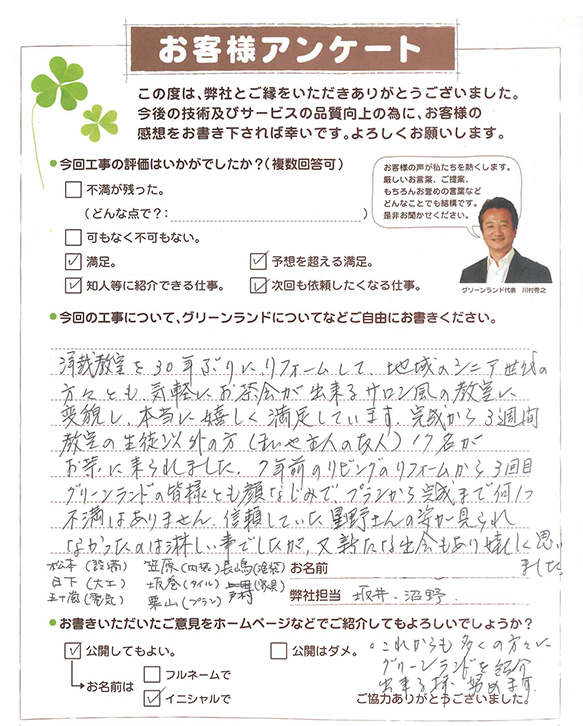 お客様アンケート
この度は、弊社とご縁をいただきありがとうございました。
今後の技術及びサービスの品質向上の為に、お客様の
感想をお書き下されば幸いです。よろしくお願いします。
●今回工事の評価はいかがでしたか？（複数回答可）
不満が残った。
（どんな点で？：　）
可もなく不可もない。
満足。 予想を超える満足。
知人等に紹介できる仕事。 次回も依頼したくなる仕事。
お客様の声が私たちを熱くします。
厳しいお言葉、ご提案、
もちろんお誉めの言葉など
どんなことでも結構です。
是非お聞かせください。
グリーンランド代表　川村秀之
●今回の工事について、グリーンランドについてなどご自由にお書きください。
洋裁教室を30年ぶりにリフォームして、地域のシニア世代の
方々とも、気軽にお茶会が出来るサロン風の教室に
変貌し、本当に嬉しく満足しています。完成から3週間
教室の生徒以外の方（まいや主人の友人）17名が
お茶に来られました。7年前のリビングのリフォームから、3回目
グリーンランドの皆様とも顔なじみで、プランから完成まで何1つ
不満はありません。信頼していた星野さんの姿が見られ
なかったのは淋しい事でしたが、又新たな出会もあり嬉しく思い
ました。
松本（設備） 笠原（内装） 長嶋（塗装）
日下（大工） 坂巻（タイル） 戸村（家具）
五十嵐（電気） 栗山（プラン）
お名前
弊社担当 坂井、沼野
●お書きいただいたご意見をホームページなどでご紹介してもよろしいでしょうか？
公開してもよい。 公開はダメ。
お名前は フルネームで
イニシャルで
。これからも多くの方々に
グリーンランドを紹介
出来る様 努めます。
ご協力ありがとうございました。